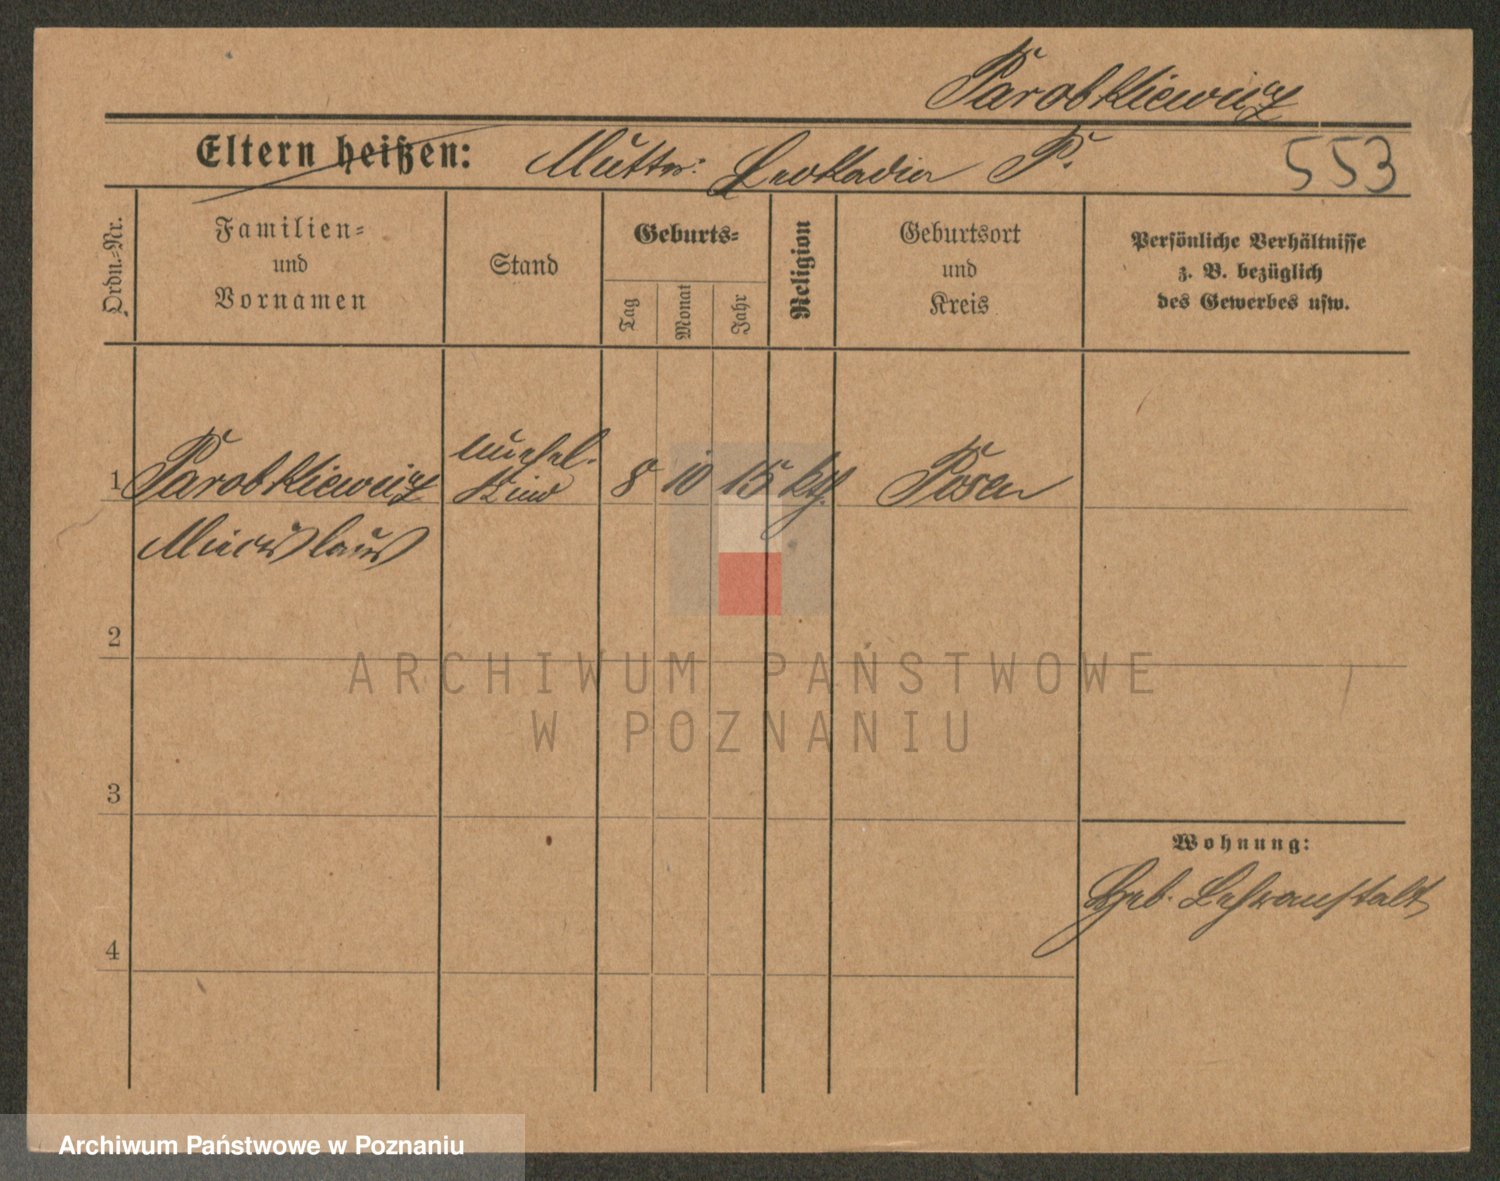 Parobkiewicz
Eltern heißen: Mutter: Leokadia P. 553
Ordn.-Nr.
Familien-
und
Vornamen
Stand
Geburts-
Tag
Monat
Jahr
Religion
Geburtsort
und
Kreis
Persönliche Verhältnisse
z. B. bezüglich
des Gewerbes usw.
1 Parobkiewicz unehel. Kind 8 10 15 kth. Posen
Miecislaus
2
3
4
Wohnung:
Heb. Lehranstalt
ARCHIWUM PAŃSTWOWE
W POZNANIU
Archiwum Państwowe w Poznaniu